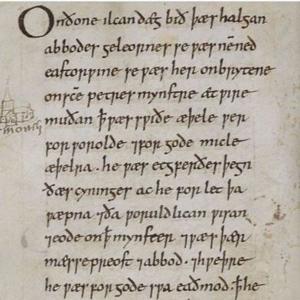 Ondone ilcan dæg bið þæs halgan
abbodes geleornes se wæs nēned
eastorwine se wæs her onbrytene
onscē petres mynstre æt wire
muðan ꝥ wæs swiðe æþele wer
for worolde ⁊for gode micle
æþelra. he wæs ecgferðes þegn
ðæs cyninges ac he forlet þa
wæpna ⁊ða woruldlican wisan
⁊eode onꝥ mynster ⁊wæs þær
mæssepreost ⁊abbod. ⁊hwæþre
he wæs for gode swa eadmod. ꝥhe